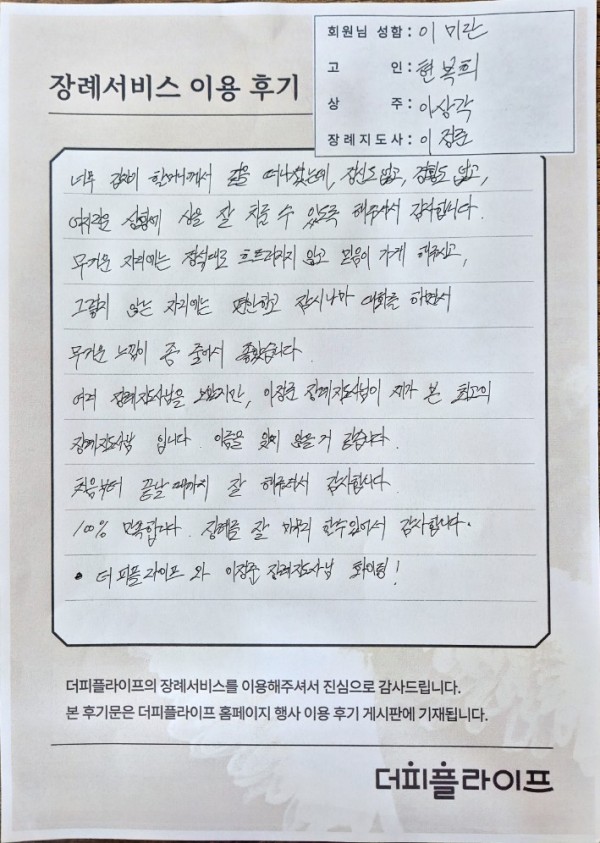 회원님 성함 : 이 미란
고 인 : 현복희
상 주 : 이상각
장례지도사 : 이 정준
장례서비스 이용 후기
너무 갑자기 할머니께서 곁을 떠나셨는데, 정신도 없고, 경황도 없고,
어려운 상황에 상을 잘 치를 수 있도록 해주셔서 감사합니다.
무거운 자리에는 정석대로 흐트러지지 않고 믿음이 가게 해주시고,
그렇지 않는 자리에는 편안하고 잠시나마 대화를 하면서
무거운 느낌이 좀 줄어서 좋았습니다.
여러 장례지도사님을 보았지만, 이정준 장례지도사님이 제가 본 최고의
장례지도사님 입니다. 이름을 잊지 않을거 같습니다.
처음부터 끝날때까지 잘 해주셔서 감사합니다.
100% 만족합니다. 장례를 잘 마무리 할수있어서 감사합니다.
• 더피플라이프 와 이정준 장례지도사님 화이팅!
더피플라이프의 장례서비스를 이용해주셔서 진심으로 감사드립니다.
본 후기문은 더피플라이프 홈페이지 행사 이용 후기 게시판에 기재됩니다.
더피플라이프